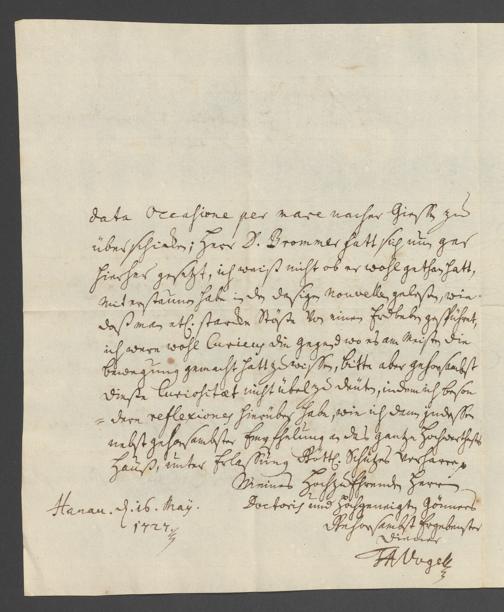 data Occasione per mare nacher Giessen zu
überschicken; Herr D. Brommer hatt sich nun gar
hierher gesetzt, ich weiß nicht ob er wohl gethan hatt,
mit erstaunen habe in den dasigen nouvellen gelesen, wie
daß man etl. starcke Stöße von einem Erdbeben gespühret,
ich were wohl Curieus die gegend wo es am Meisten die
bewegung gemacht hatt zu wissen, bitte aber gehorsambst
dieße Curiositat nicht übel zu deuten, indem ich beson
= dere reflexiones hierüber habe, wie ich dann indessen
nebst gehorsambster Empfehlung an das gantze Hochwertheste
Hauß, unter Erlassung Göttl. Schutzes verharre
Meines HochzuEhrenden Herrn
Hanau. d. 16. May. Doctoris und Hochgeneigten Gönners
1727 Gehorsambst Ergebenster
Diener
Vogell